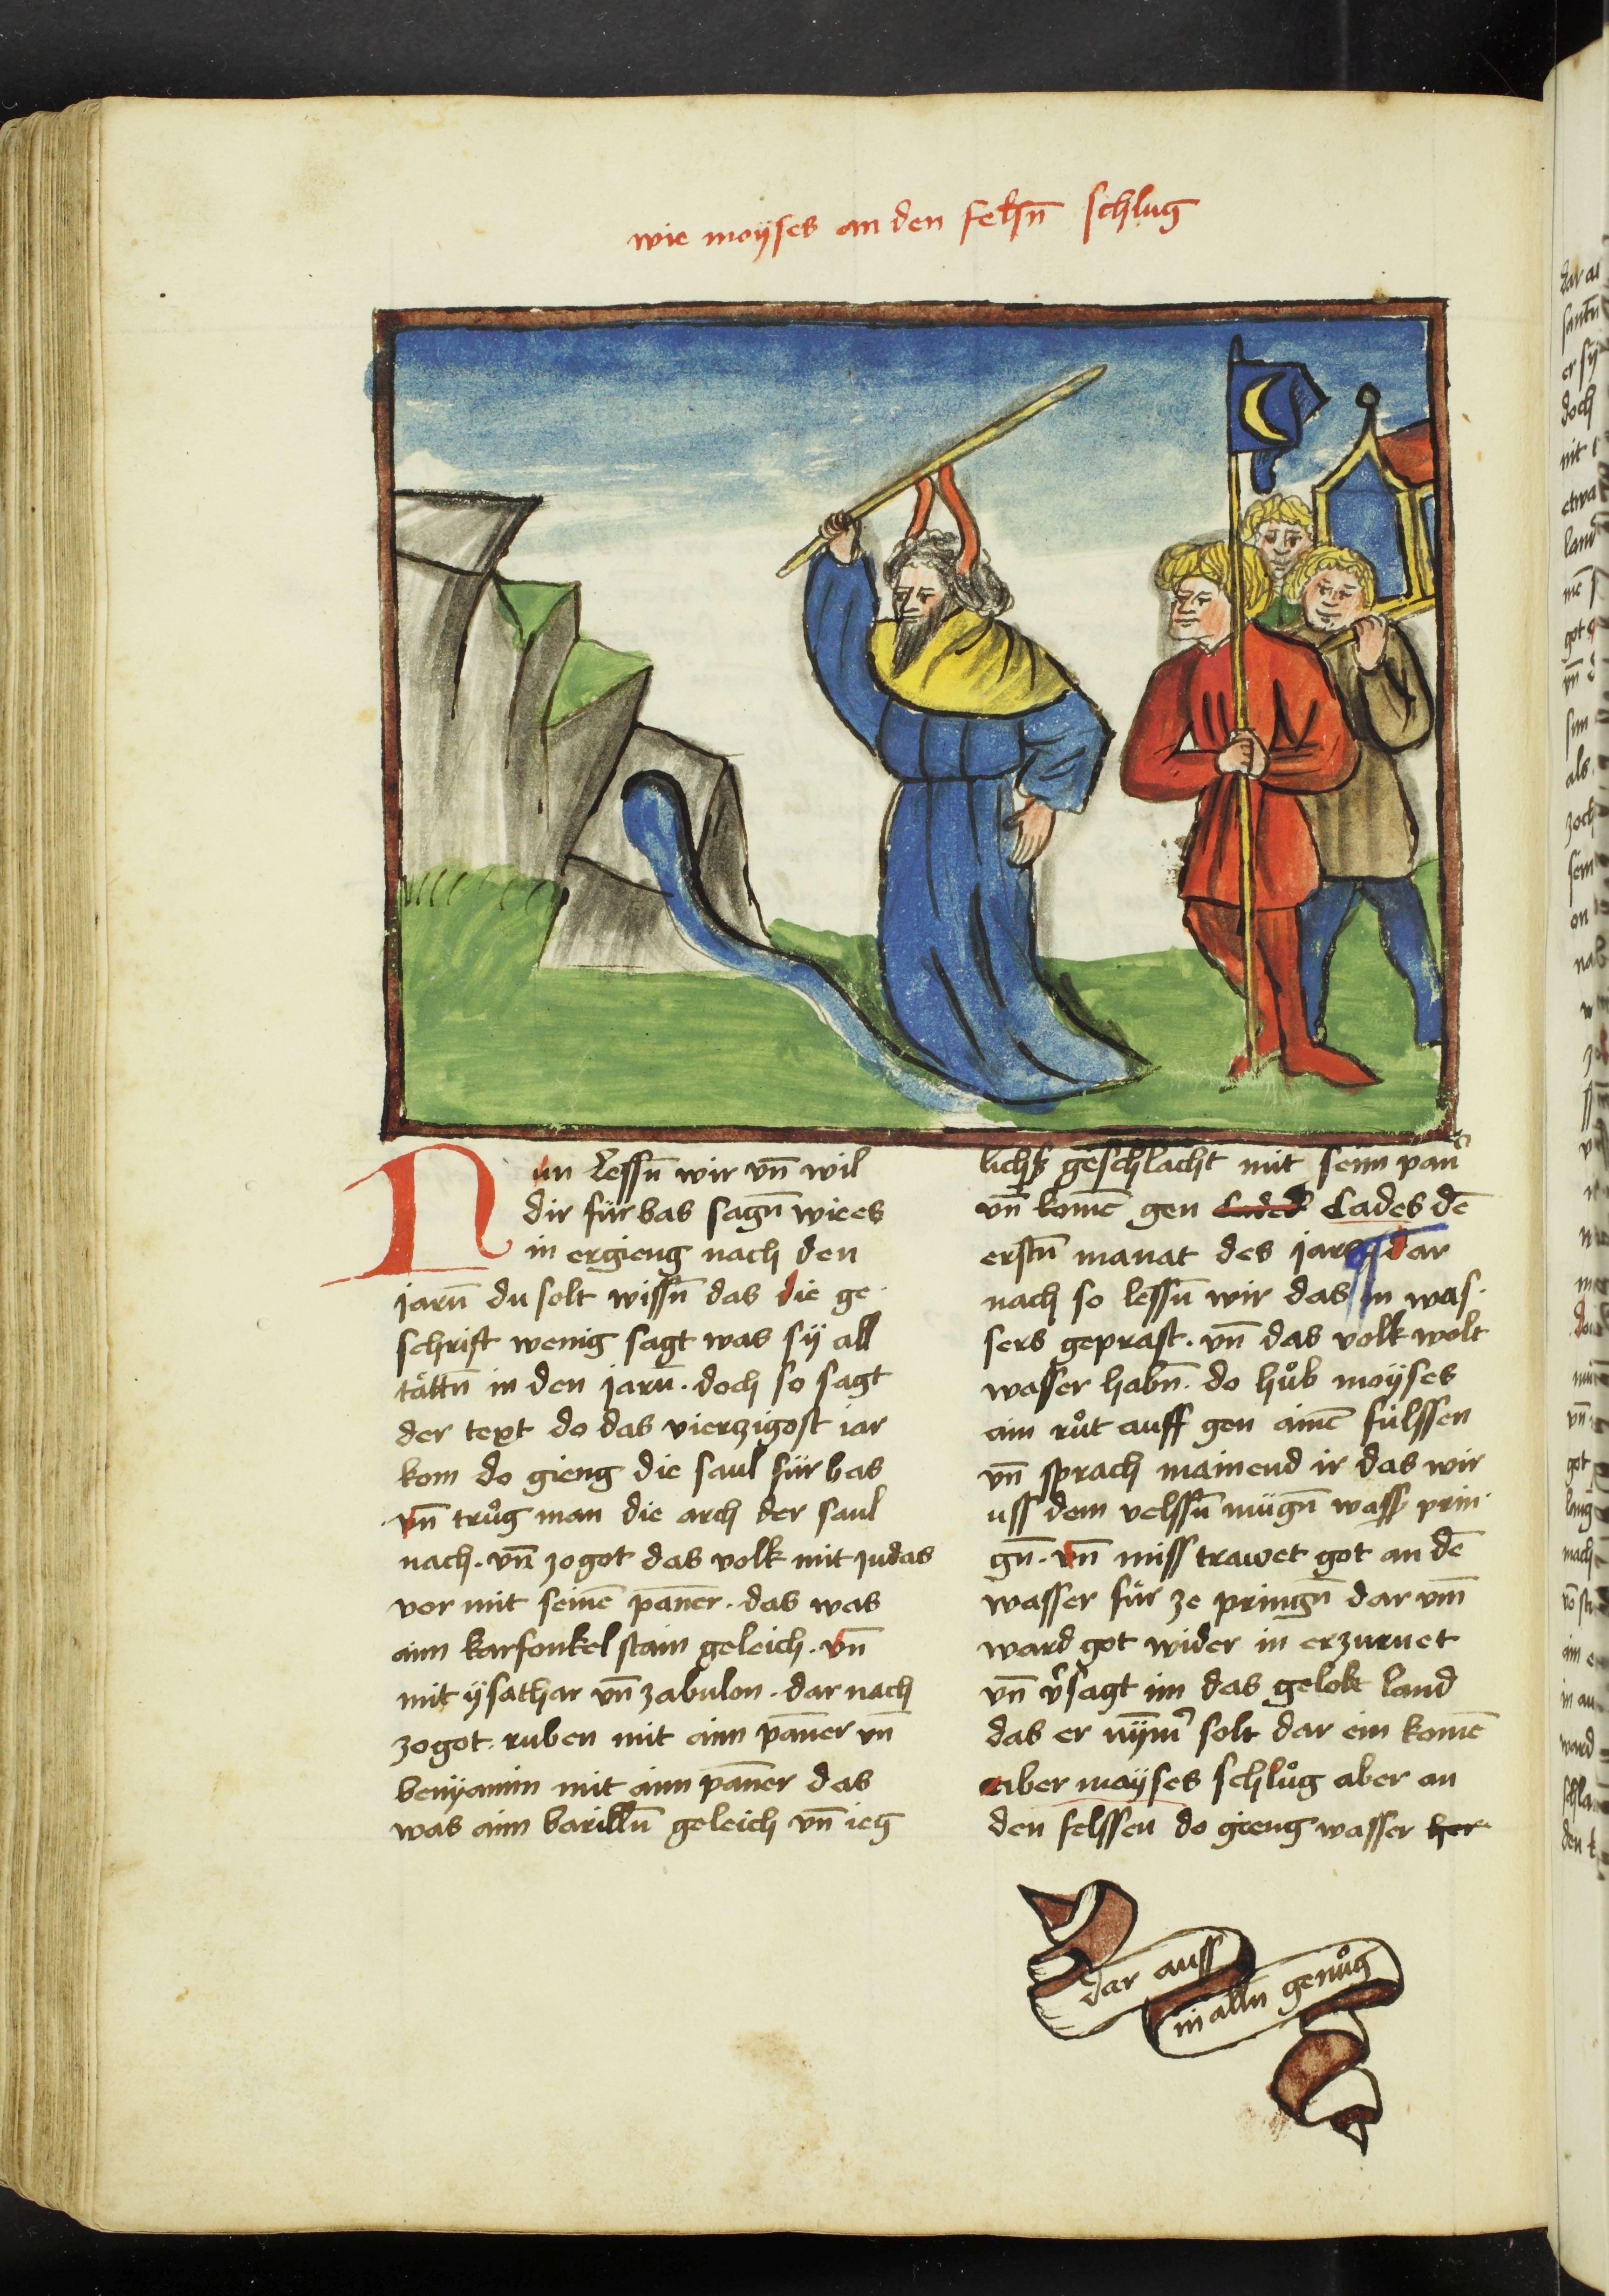 wie moÿses an den felsn̄ schlug
Nun lessn̄ wir vn̄ wil
dir für bas sagn̄ wie es
in ergieng nach den
jarn̄ du solt wissn̄ das die ge
schrift wenig sagt was sÿ all
tättn̄ in den jarn̄ . doch so sagt
der text do das vierzigost iar
kom do gieng die saul für bas
vn̄ trůg man die arch der saul
nach . vn̄ zogot das volk mit Judas
vor mit seinē pāner . das was
ainn karfonkel stain geleich . vn̄
mit ÿsathar vn̄ zabulon . dar nach
zogot . ruben mit ainn pāner vn̄
benÿamin mit ainn pāner das
was ainn barilln̄ geleich vn̄ ieg
lichs geschlacht mit seinn pan̄
vn̄ komē gen Cades dē
erstn̄ manat des jars dar
nach so lessn̄ wir das in was
sers geprast . vn̄ das volk wolt
wasser habn̄ . do hůb moÿses
ain růt auff gen ainē fülssen
vn̄ sprach mainend ir das wir
uss dem velssn̄ mügn̄ wass prin
gn̄ . vn̄ miss trawet got an dē
wasser für ze pringn̄ dar vm̄
ward got wider in erzurnet
vn̄ v̾sagt im das gelobt land
das er nÿm̄ solt dar ein komē
aber moÿses schlůg aber an
den felssen do gieng wasser her
dar auss
in alln̄ genůg